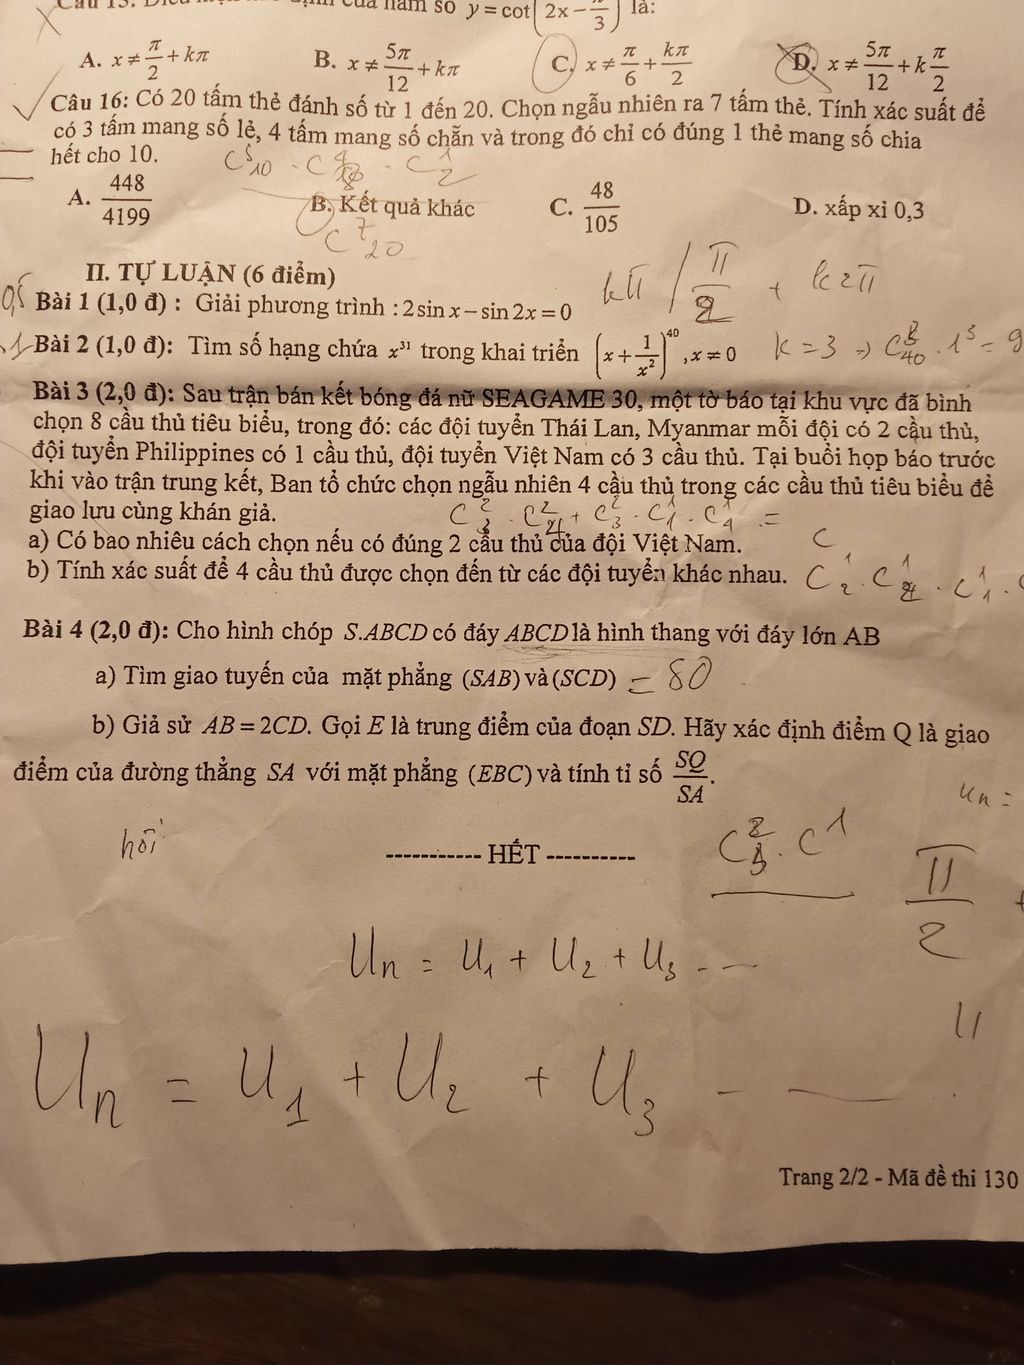 y = cot(2x - π/3) là:
A. x ≠ π/2 + kπ B. x ≠ 5π/12 + kπ C. x ≠ π/6 + kπ/2 D. x ≠ 5π/12 + k π/2
Câu 16: Có 20 tấm thẻ đánh số từ 1 đến 20. Chọn ngẫu nhiên ra 7 tấm thẻ. Tính xác suất để
có 3 tấm mang số lẻ, 4 tấm mang số chẵn và trong đó chỉ có đúng 1 thẻ mang số chia
hết cho 10.
A. 448/4199 B. Kết quả khác C. 48/105 D. xấp xỉ 0,3
C⁷₂₀
II. TỰ LUẬN (6 điểm)
kπ / π/2 + k2π
0,5 Bài 1 (1,0 đ) : Giải phương trình : 2 sin x − sin 2x = 0
Bài 2 (1,0 đ): Tìm số hạng chứa x³¹ trong khai triển (x + 1/x²)⁴⁰, x ≠ 0 k = 3 ⇒ C³₄₀ . 1³ = 9
Bài 3 (2,0 đ): Sau trận bán kết bóng đá nữ SEAGAME 30, một tờ báo tại khu vực đã bình
chọn 8 cầu thủ tiêu biểu, trong đó: các đội tuyển Thái Lan, Myanmar mỗi đội có 2 cầu thủ,
đội tuyển Philippines có 1 cầu thủ, đội tuyển Việt Nam có 3 cầu thủ. Tại buổi họp báo trước
khi vào trận trung kết, Ban tổ chức chọn ngẫu nhiên 4 cầu thủ trong các cầu thủ tiêu biểu để
giao lưu cùng khán giả.
C²₃ . C²₄ + C²₃ . C¹₁ . C¹₄ =
a) Có bao nhiêu cách chọn nếu có đúng 2 cầu thủ của đội Việt Nam. C
b) Tính xác suất để 4 cầu thủ được chọn đến từ các đội tuyển khác nhau. C¹₂ . C¹₂ . C¹₁ .
Bài 4 (2,0 đ): Cho hình chóp S.ABCD có đáy ABCD là hình thang với đáy lớn AB
a) Tìm giao tuyến của mặt phẳng (SAB) và (SCD) = 80
b) Giả sử AB = 2CD. Gọi E là trung điểm của đoạn SD. Hãy xác định điểm Q là giao
điểm của đường thẳng SA với mặt phẳng (EBC) và tính tỉ số SQ/SA.
un =
hồi
----------- HẾT ----------
π/2
Un = U1 + U2 + U3 - —
U
Un = U1 + U2 + U3 - — .
Trang 2/2 - Mã đề thi 130